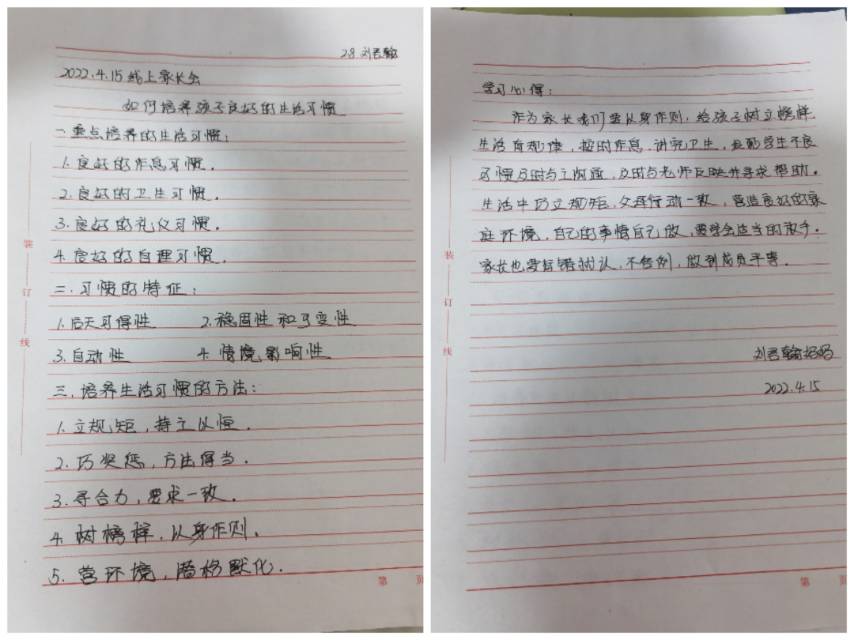 28 刘君翰
2022.4.15线上家长会
如何培养孩子良好的生活习惯
一.重点培养的生活习惯:
1.良好的作息习惯.
2.良好的卫生习惯.
3.良好的礼仪习惯.
4.良好的自理习惯.
二.习惯的特征:
1.后天习得性 2.稳固性和可变性
3.自动性 4.情境影响性
三.培养生活习惯的方法:
1.立规矩,持之以恒.
2.巧奖惩,方法得当.
3.寻合力,要求一致.
4.树榜样,以身作则.
5.营环境,潜格默化.
第 页
装
订
线
学习心得:
作为家长我们要以身作则,给孩子树立榜样
生活有规律,按时作息.讲究卫生,发现学生不良
习惯及时与之沟通,及时与老师反映并寻求帮助.
生活中巧立规矩,父母行动一致,营造良好的家
庭环境.自己的事情自己做,要学会适当的放手.
家长也要有错就认,不包例,做到成员平等.
刘君翰妈妈
2022.4.15
第 页
装
订
线